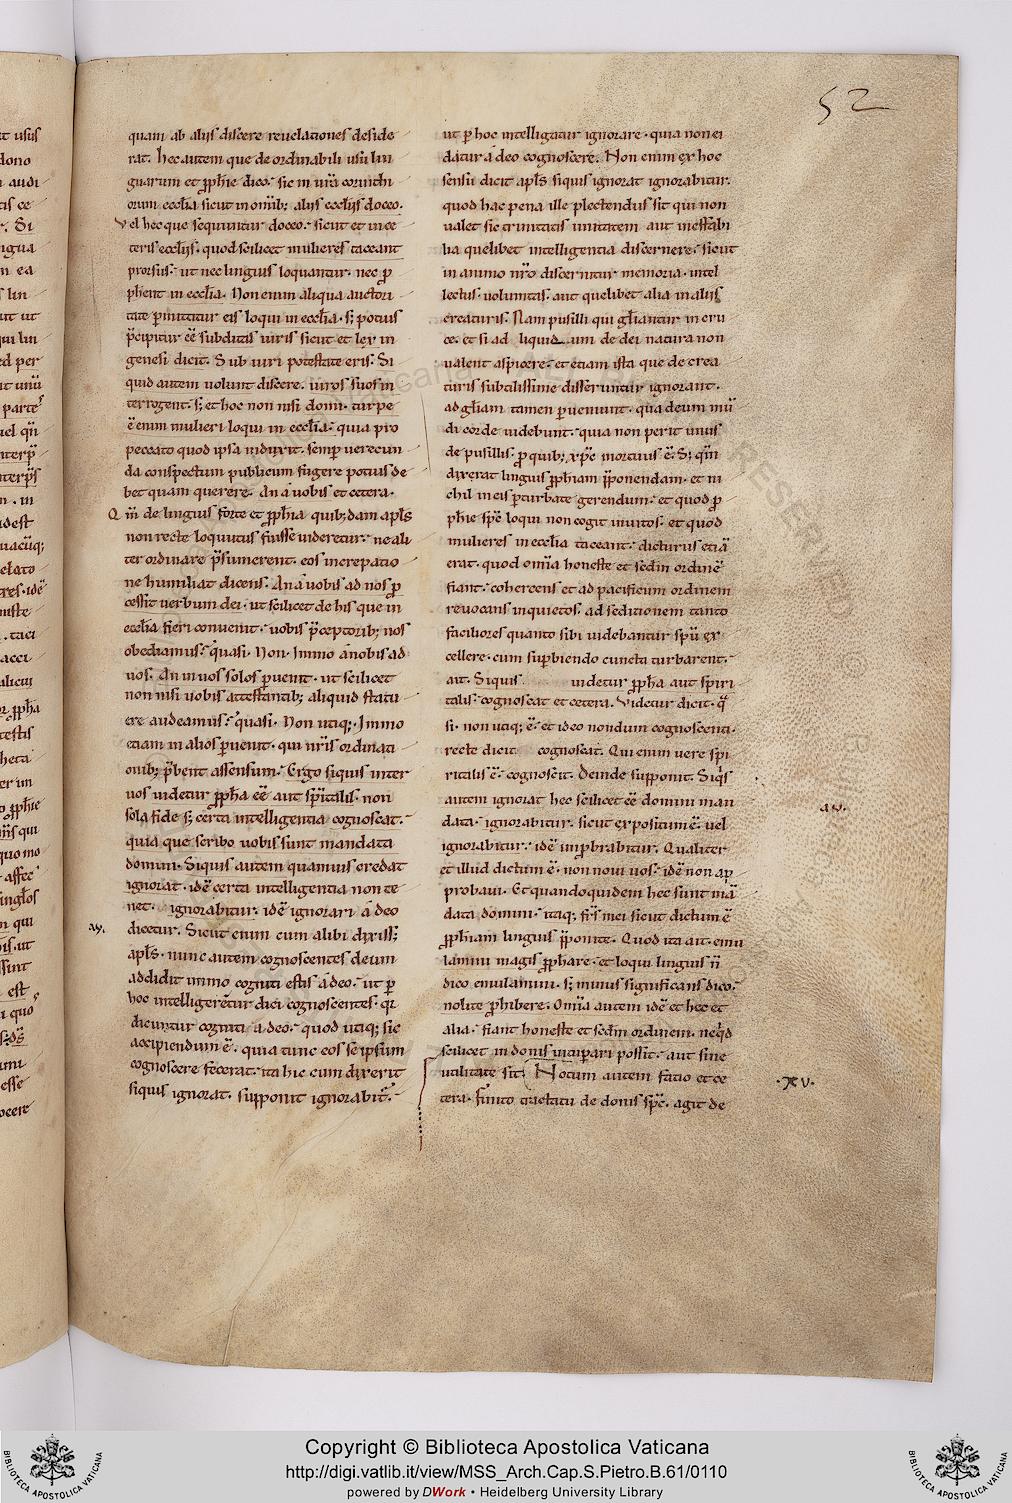 52
quam ab alijs discere reuelationes deside
rat. hec autem que de ordinabili usu lin
guarum et ꝓphie dico. sic in ur̄a corinthi
orum ecclia sicut in omib; alijs ecclijs doceo.
Vel hec que sequuntur doceo. sicut et in ce
teris ecclijs. quod scilicet mulieres taceant
prorsus. ut nec linguis loquantur. nec ꝓ
phent in ecclia. Non enim aliqua auctori
tate ꝑmittitur eis loqui in ecclia. s; potius
p̄cipitur eē subditas uiris sicut et lex in
genesi dicit. Sub uiri potestate eris. Si
quid autem uolunt discere. uiros suos in
terrogent. s; et hoc non nisi domi. turpe
ē enim mulieri loqui in ecclia. quia pro
peccato quod ipsa induxit. semꝑ uerecun
da conspectum publicum fugere potius de
bet quam querere. An a uobis et cetera.
Qm̄ de linguis forte et ꝓphia quib;dam apl̄s
non recte loquutus fuisse uideretur. ne ali
ter ordinare p̄sumerent. eos increpatio
ne humiliat dicens. An a uobis ad nos ꝓ
cessit uerbum dei. ut scilicet de his que in
ecclia fieri conuenit. uobis p̄ceptorib; nos
obediamus. quasi. Non. Immo a nobis ad
uos. An in uos solos ꝑuenit. ut scilicet
non nisi uobis attestantib; aliquid statu
ere audeamus. quasi. Non utiq;. Immo
etiam in alios ꝑuenit. qui nr̄is ordinati
onib; p̄bent assensum. Ergo siquis inter
uos uidetur ꝓpha eē aut spitalis. non
sola fide s; certa intelligentia cognoscat.
quia que scribo uobis sunt mandata
domini. Siquis autem quamuis credat
ignorat. idē certa intelligentia non te
net. ignorabitur. idē ignorari a deo
dicetur. Sicut enim cum alibi dixiss;
ay.
apl̄s. nunc autem cognoscentes deum
addidit immo cogniti estis a deo. ut ꝑ
hoc intelligeretur dici cognoscentes. qr
dicuntur cogniti a deo. quod utiq; sic
accipiendum ē. quia tunc eos se ipsum
cognoscere fecerat. ita hic cum dixerit
siquis ignorat. supponit ignorabit̄.
ut ꝑ hoc intelligatur ignorare. quia non ei
datur a deo cognoscere. Non enim ex hoc
sensu dicit apl̄s siquis ignorat ignorabitur.
quod hac pena ille plectendus sit qui non
ualet sic trinitatis unitatem aut ineffabi
lia quelibet intelligentia discernere. sicut
in animo nr̄o discernitur memoria. intel
lectus. uoluntas. aut quelibet alia in alijs
creaturis. Nam pusilli qui gl̄iantur in cru
ce. et si ad liquidum de dei natura non
ualent aspicere. et etiam ista que de crea
turis subtilissime disseruntur ignorant.
ad gl̄iam tamen ꝑueniunt. qua deum mū
di corde uidebunt. quia non perit unus
de pusillis. ꝓ quib; xp̄c mortuus ē. S; qm̄
dixerat linguis ꝓphiam p̄ponendam. et ni
chil in eis ꝑturbate gerendum. et quod ꝓ
phie sp̄c loqui non cogit inuitos. et quod
mulieres in ecclia taceant. dicturus etiā
erat. quod omīa honeste et scd̄m ordinē
fiant. cohercens et ad pacificum ordinem
reuocans inquietos. ad seditionem tanto
faciliores quanto sibi uidebantur spū ex
cellere. cum suꝑbiendo cuncta turbarent.
ait. Siquis uidetur ꝓpha aut spiri
talis. cognoscat et cetera. Videtur dicit. q̄
si. non utiq; ē. et ideo nondum cognoscenti.
recte dicit cognoscat. Qui enim uere spi
ritalis ē. cognoscit. Deinde supponit. Siqs
autem ignorat hec scilicet eē domini man
ay.
data. ignorabitur. sicut expositum ē. uel
ignorabitur. idē improbabitur. Qualiter
et illud dictum ē. non noui uos. idē non ap
probaui. Et quandoquidem hec sunt mā
data domini. itaq; fr̄s mei sicut dictum ē
ꝓphiam linguis p̄ponite. Quod ita ait. emu
lamini magis ꝓphare. et loqui linguis n̄
dico emulamini. s; minus significans dico.
nolite ꝓhibere. Omīa autem idē et hec et
alia. fiant honeste et scd̄m ordinem. neqd
scilicet in donis uituꝑari possit. aut sine
utilitate sit. Notum autem facio et ce
.XV.
tera. finito tractatu de donis sp̄c. agit de
Copyright © Biblioteca Apostolica Vaticana
http://digi.vatlib.it/view/MSS_Arch.Cap.S.Pietro.B.61/0110
powered by DWork • Heidelberg University Library
BIBLIOTECA APOSTOLICA VATICANA
BIBLIOTECA APOSTOLICA VATICANA